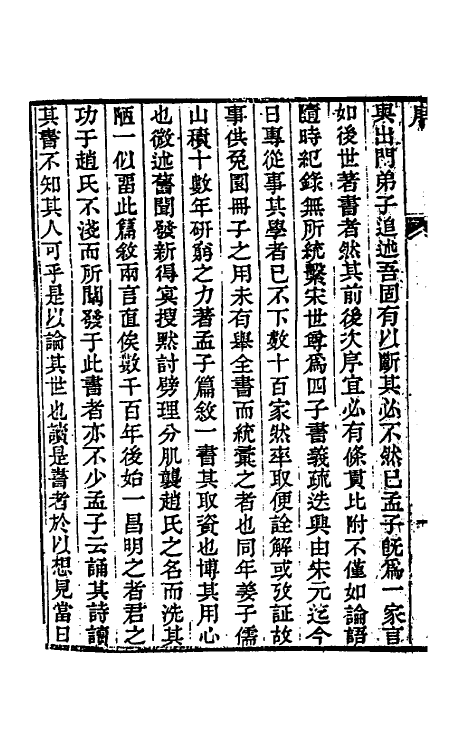 序
與出門弟子追述吾固有以斷其必不然已孟子旣爲一家言
如後世著書者然其前後次序宜必有條貫比附不僅如論語
隨時紀錄無所統繫宋世尊爲四子書義疏迭興由朱元迄今
日專從事其學者已不下數十百家然率取便詮解或攷証故
事供兔園冊子之用未有舉全書而統彚之者也同年姜子儒
山積十數年研窮之力著孟子篇敘一書其取資也博其用心
也微述舊聞發新得冥搜默討劈理分肌襲趙氏之名而洗其
陋一似畱此篇敘兩言直俟數千百年後始一昌明之者君之
功于趙氏不淺而所闡發于此書者亦不少孟子云誦其詩讀
其書不知其人可乎是以論其世也讀是書者於以想見當日